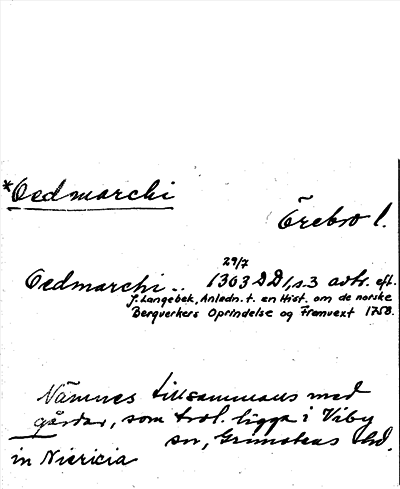 *Oedmarchi
Örebro l.
29/7
Oedmarchi .. 1303 DD 1, s. 3 avtr. eft.
J. Langebek, Anledn. t. en Hist. om de norske
Bergverkers Oprindelse og Fremvext 1758.
Nämnes tillsammans med
gårdar, som trol. ligga i Viby
sn, Grimstens hd.
in Niericia